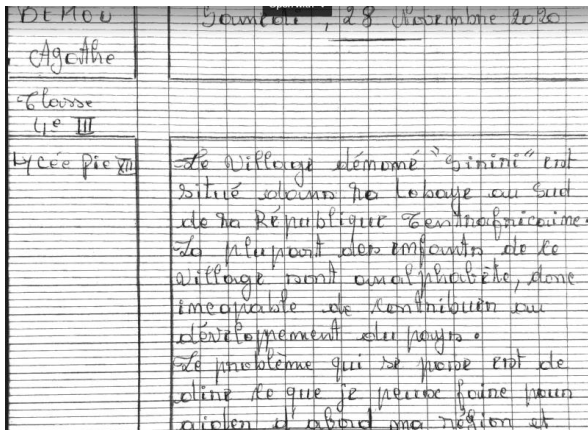 DEMOU
Samedi, 28 Novembre 2020
Agathe
Classe
4e III
Lycée Pie XII
Le village démomé "Sinini" est
situé dans la Lobaye au Sud
de la République Centrafricaine.
La plupart des enfants de ce
village sont analphabète, donc
incapable de contribuer au
développement du pays.
Le problème qui se pose est de
dire ce que je peux faire pour
aider d'abord ma région et